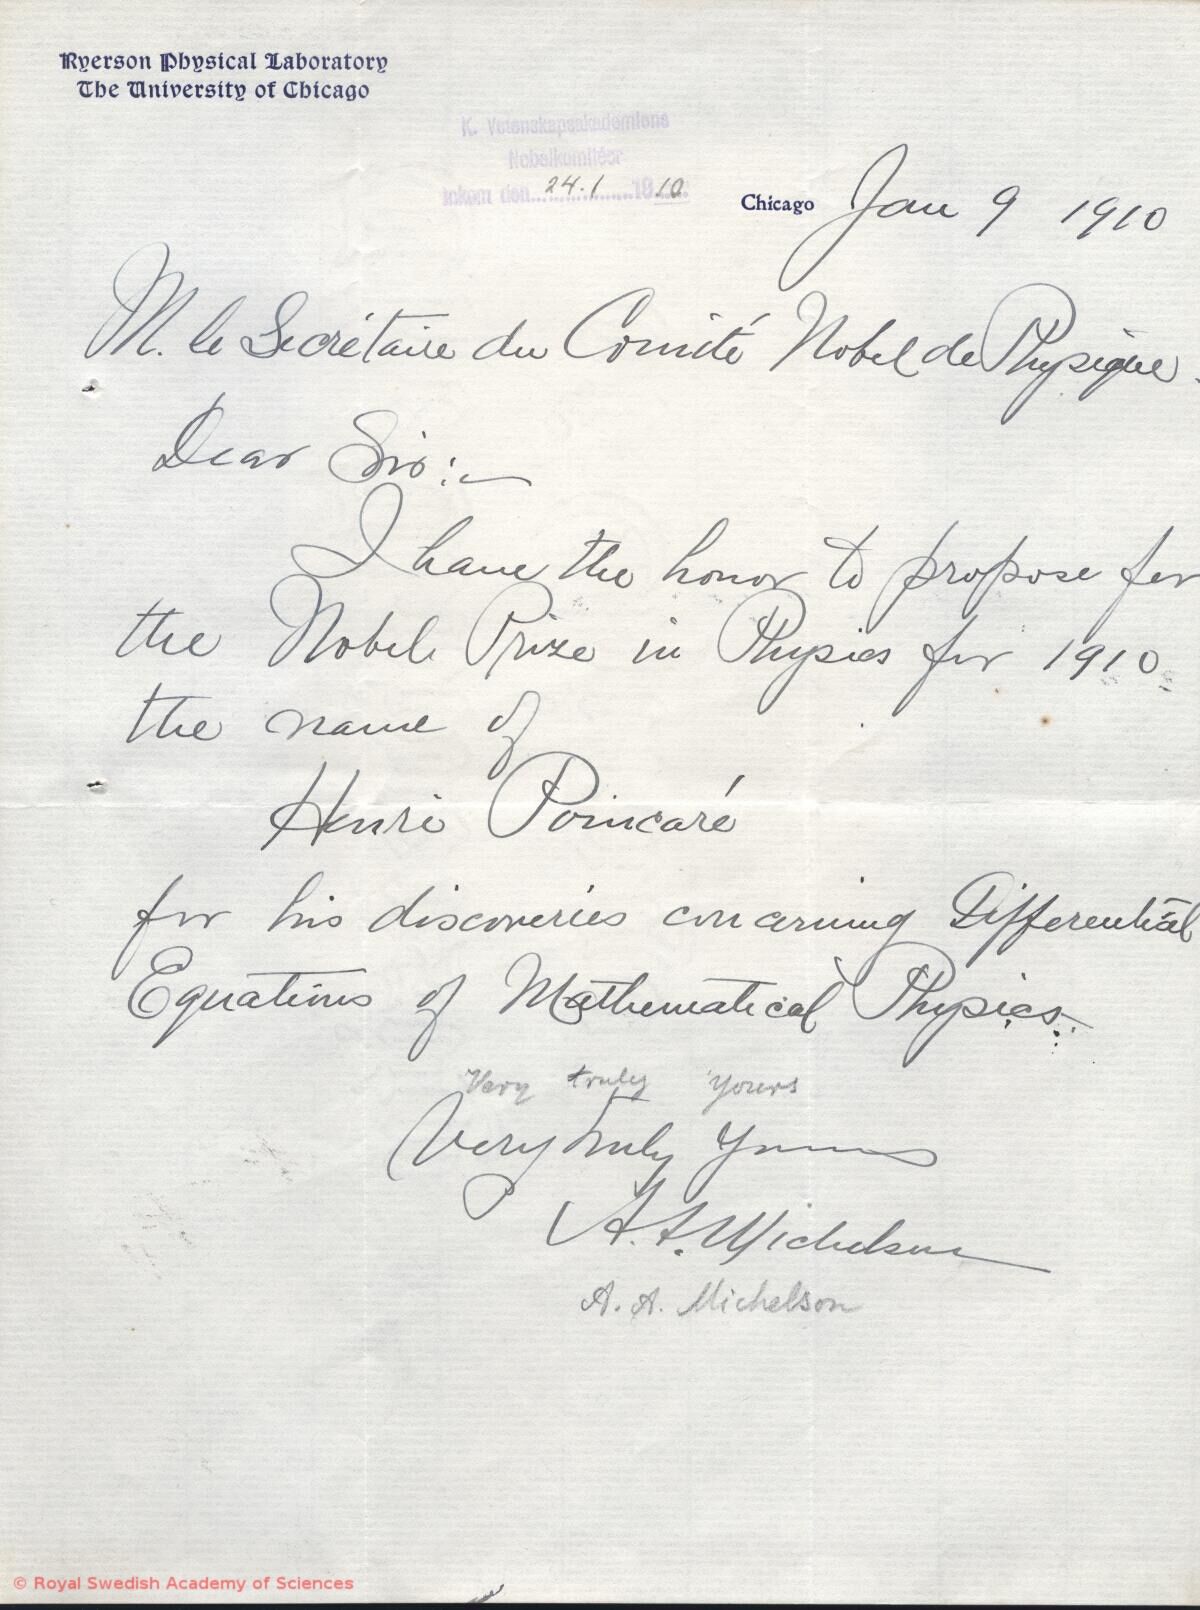 Ryerson Physical Laboratory
The University of Chicago
K. Vetenskapsakademiens
Nobelkomitéer
Inkom den 24.1 1910
Chicago Jan 9 1910
M. le Secrétaire du Comité Nobel de Physique.
Dear Sir:—
I have the honor to propose for
the Nobel Prize in Physics for 1910
the name of
Henri Poincaré
for his discoveries concerning Differential
Equations of Mathematical Physics.
Very truly yours
Very truly yours
A. A. Michelson
A. A. Michelson
© Royal Swedish Academy of Sciences